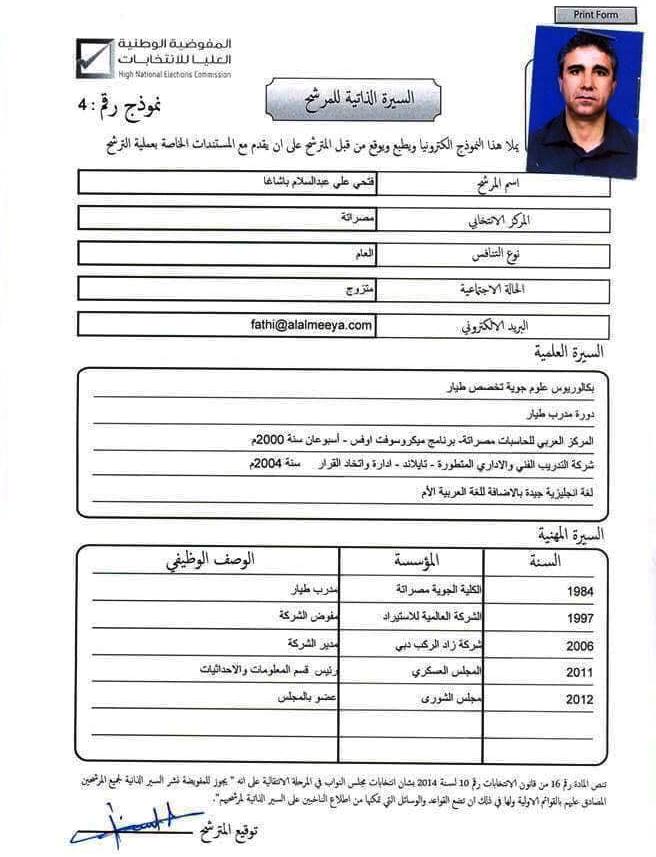 Print Form
المفوضية الوطنية
العليا للانتخابات
High National Elections Commission
نموذج رقم : 4
السيرة الذاتية للمرشح
يملا هذا النموذج الكترونيا ويطبع ويوقع من قبل المترشح على ان يقدم مع المستندات الخاصة بعملية الترشح
اسم المرشح فتحي علي عبدالسلام باشاغا
المركز الانتخابي مصراتة
نوع التنافس العام
الحالة الاجتماعية متزوج
البريد الالكتروني fathi@alalmeeya.com
السيرة العلمية
بكالوريوس علوم جوية تخصص طيار
دورة مدرب طيار
المركز العربي للحاسبات مصراتة- برنامج ميكروسوفت اوفس - أسبوعان سنة 2000م
شركة التدريب الفني والاداري المتطورة - تايلاند - ادارة واتخاد القرار سنة 2004م
لغة انجليزية جيدة بالاضافة للغة العربية الأم
السيرة المهنية
السنة المؤسسة الوصف الوظيفي
1984 الكلية الجوية مصراتة مدرب طيار
1997 الشركة العالمية للاستيراد مفوض الشركة
2006 شركة زاد الركب دبي مدير الشركة
2011 المجلس العسكري رئيس قسم المعلومات والاحداثيات
2012 مجلس الشورى عضو بالمجلس
تنص المادة رقم 16 من قانون الانتخابات رقم 10 لسنة 2014 بشان انتخابات مجلس النواب في المرحلة الانتقالية على انه " يجوز للمفوضية نشر السير الذاتية لجميع المرشحين
المصادق عليهم بالقوائم الاولية ولها في ذلك ان تضع القواعد والوسائل التي تمكنها من اطلاع الناخبين على السير الذاتية لمرشحيهم".
توقيع المترشح